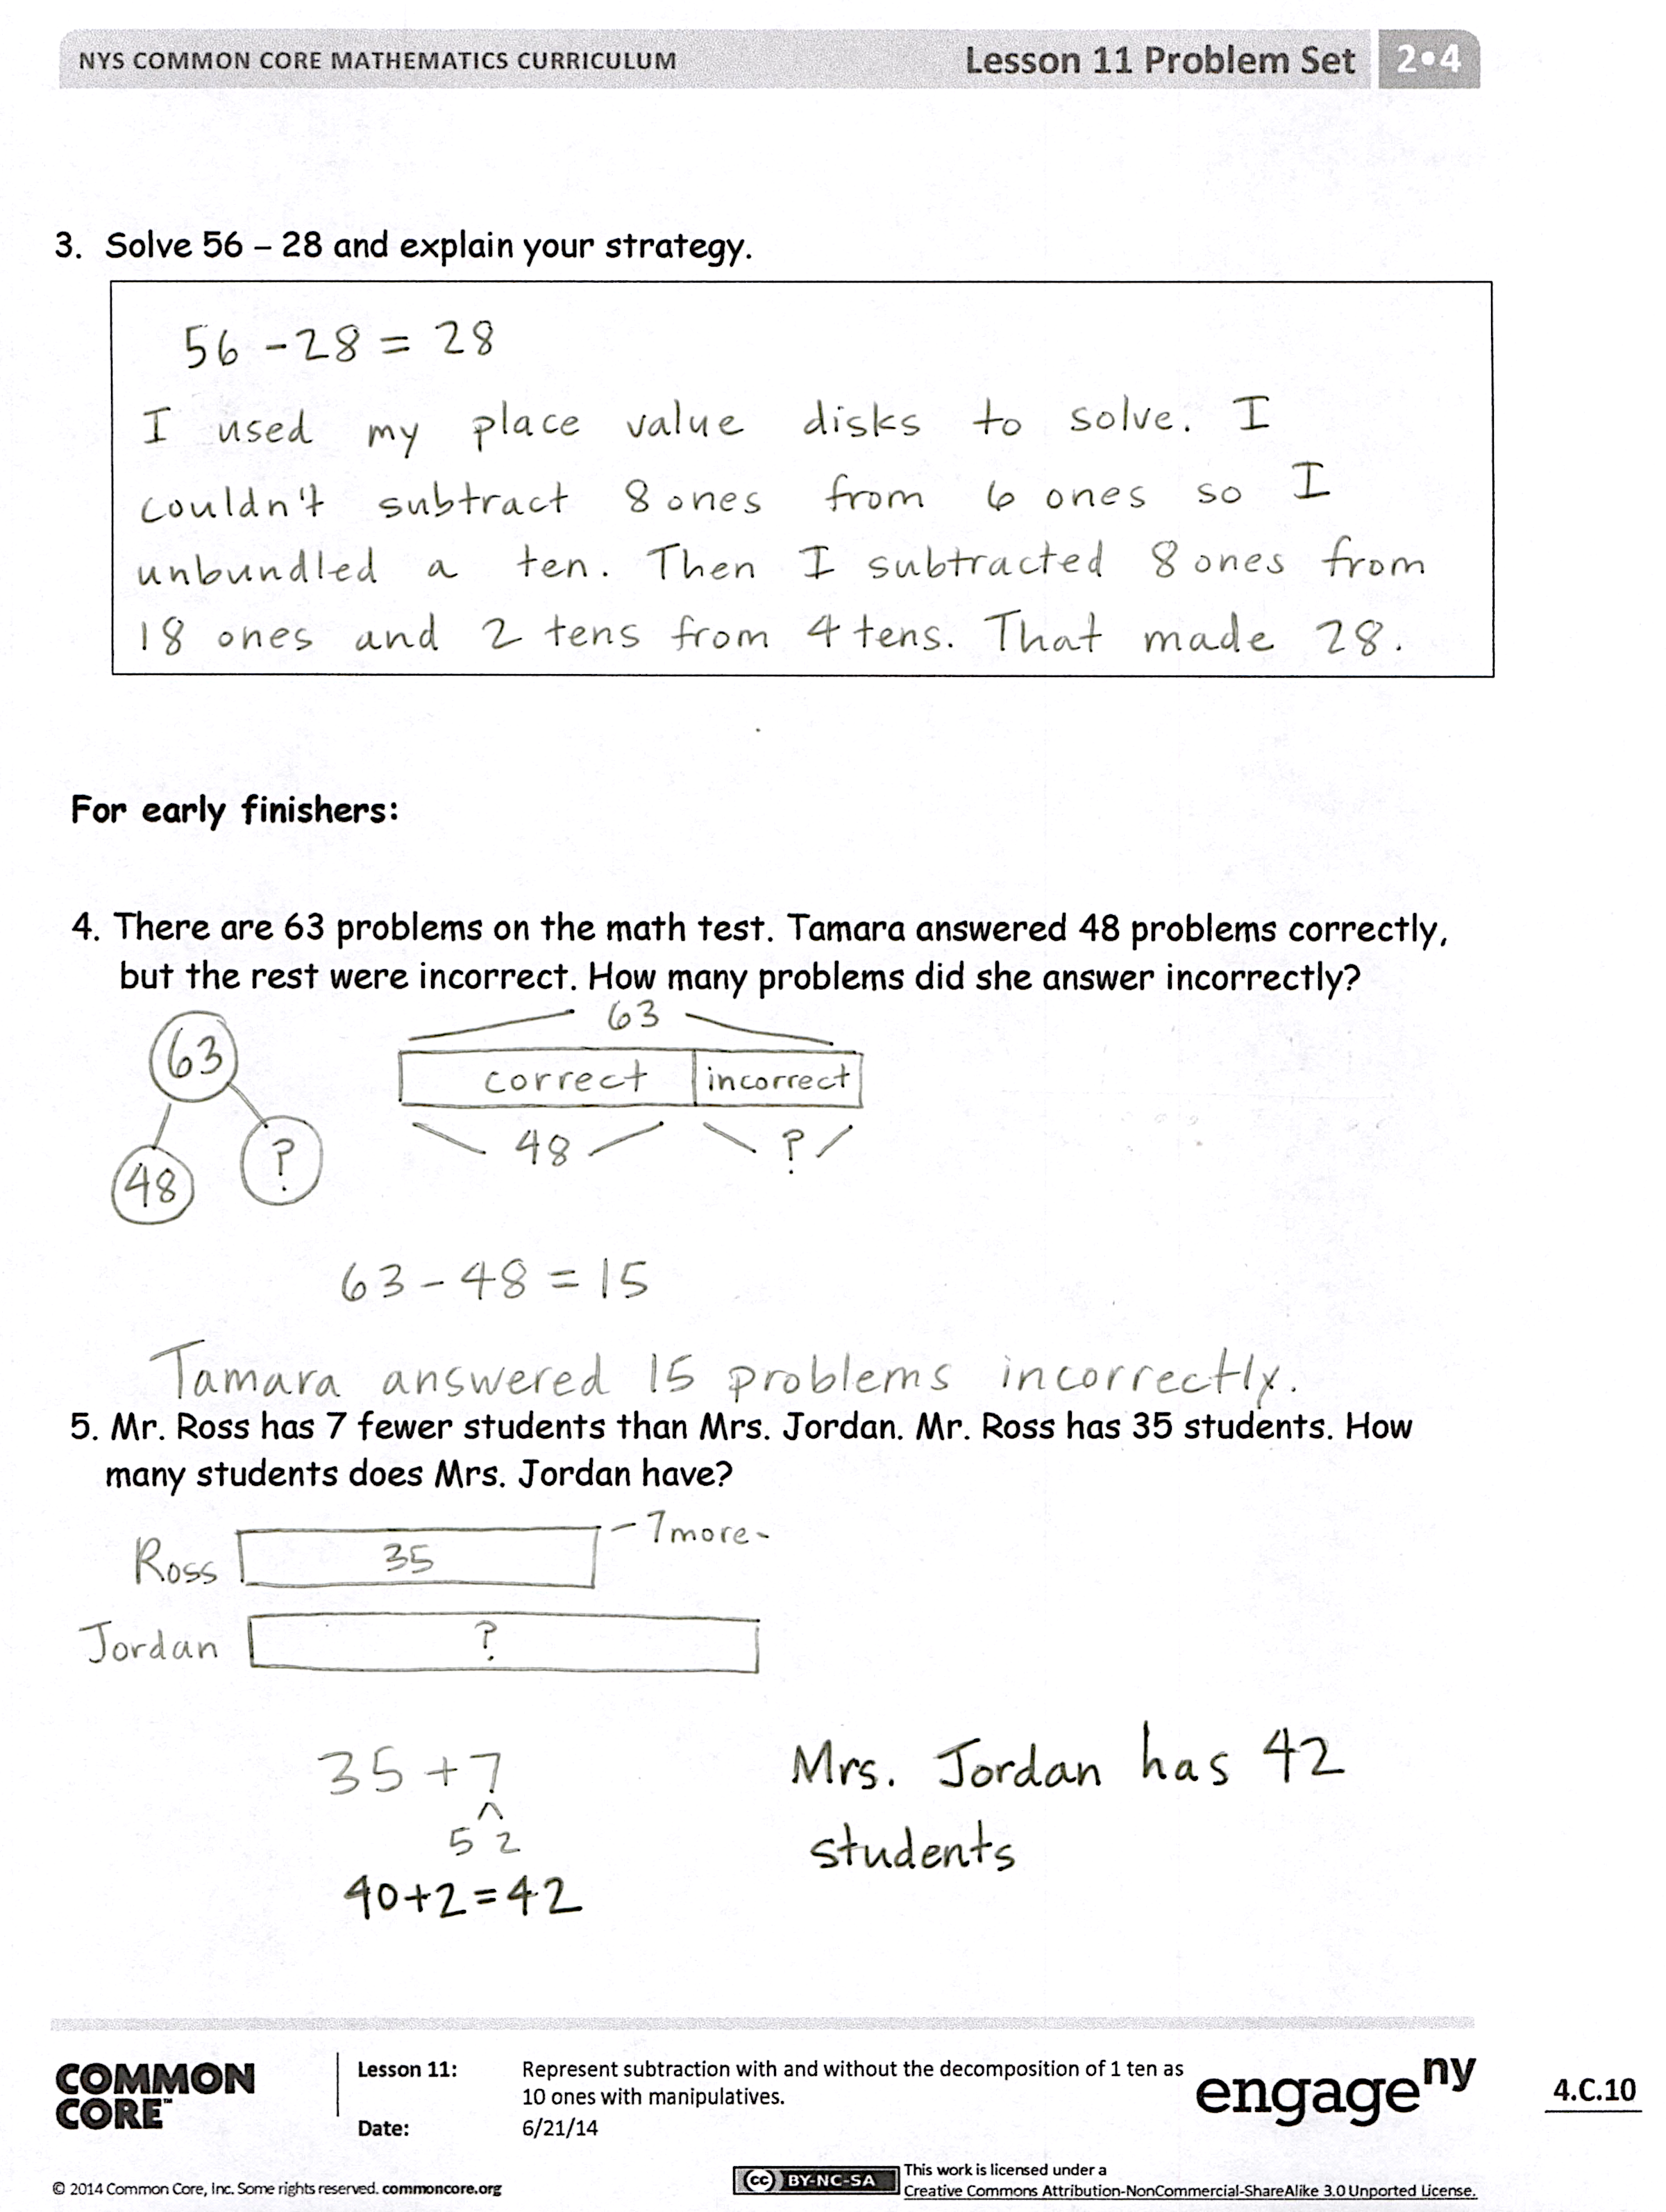 NYS COMMON CORE MATHEMATICS CURRICULUM Lesson 11 Problem Set 2•4
3. Solve 56 – 28 and explain your strategy.
56 - 28 = 28
I used my place value disks to solve. I
couldn't subtract 8 ones from 6 ones so I
unbundled a ten. Then I subtracted 8 ones from
18 ones and 2 tens from 4 tens. That made 28.
For early finishers:
4. There are 63 problems on the math test. Tamara answered 48 problems correctly,
but the rest were incorrect. How many problems did she answer incorrectly?
63
63
correct incorrect
48 ?
48 ?
63 - 48 = 15
Tamara answered 15 problems incorrectly.
5. Mr. Ross has 7 fewer students than Mrs. Jordan. Mr. Ross has 35 students. How
many students does Mrs. Jordan have?
Ross 35 - 7 more -
Jordan ?
35 + 7
5 2
40 + 2 = 42
Mrs. Jordan has 42
students
COMMON
CORE™
Lesson 11: Represent subtraction with and without the decomposition of 1 ten as
10 ones with manipulatives.
Date: 6/21/14
engage ny
4.C.10
© 2014 Common Core, Inc. Some rights reserved. commoncore.org
cc BY-NC-SA
This work is licensed under a
Creative Commons Attribution-NonCommercial-ShareAlike 3.0 Unported License.